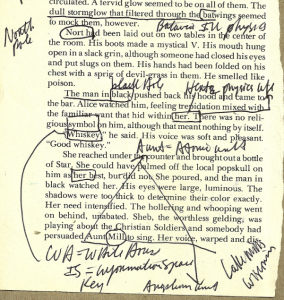 circulated. A fervid glow seemed to be on all of them. The
dull stormglow that filtered through the batwings seemed
to mock them, however.
North
pole
Nort had been laid out on two tables in the center of
the room. His boots made a mystical V. His mouth hung
open in a slack grin, although someone had closed his eyes
and put slugs on them. His hands had been folded on his
chest with a sprig of devil-grass in them. He smelled like
poison.
The man in black pushed back his hood and came to
the bar. Alice watched him, feeling trepidation mixed with
the familiar want that hid within her. There was no reli-
gious symbol on him, although that meant nothing by itself.
"Whiskey," he said. His voice was soft and pleasant.
"Good whiskey."
She reached under the counter and brought out a bottle
of Star. She could have palmed off the local popskull on
him as her best, but did not. She poured, and the man in
black watched her. His eyes were large, luminous. The
shadows were too thick to determine their color exactly.
Her need intensified. The hollering and whooping went
on behind, unabated. Sheb, the worthless gelding, was
playing about the Christian Soldiers and somebody had
persuaded Aunt Mill to sing. Her voice, warped and
WA = White
IS = Information Space
Key!